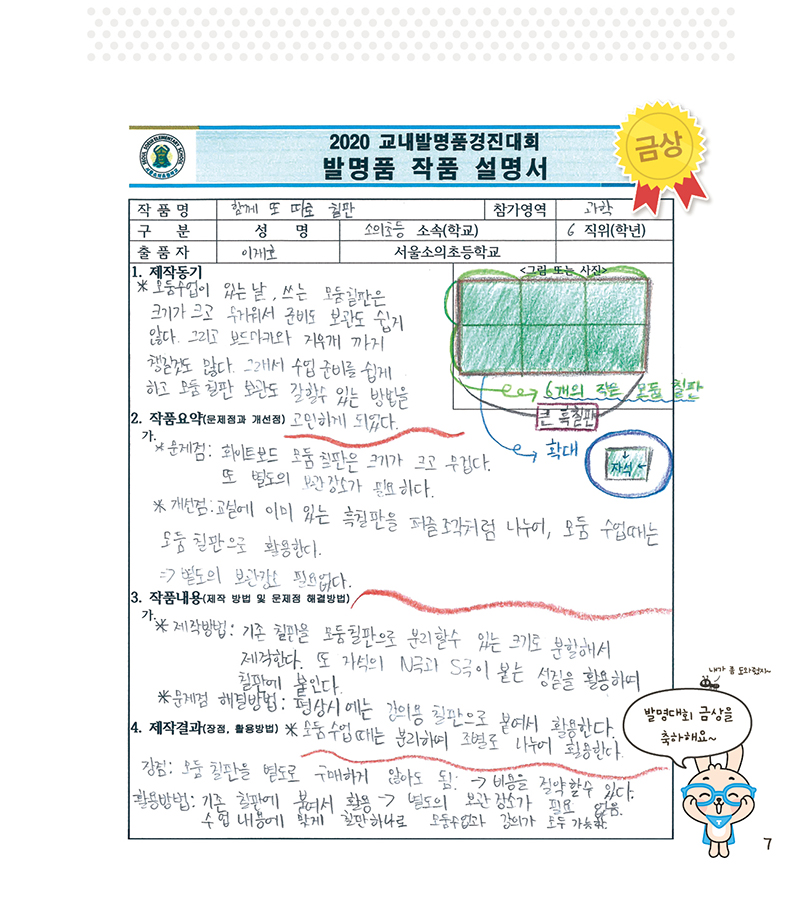 2020 교내발명품경진대회
발명품 작품 설명서
금상
작 품 명 함께 또 따로 칠판 참가영역 과학
구 분 성 명 소의초등 소속(학교) 6 직위(학년)
출 품 자 이제호 서울소의초등학교
1. 제작동기
<그림 또는 사진>
* 모둠수업이 있는 날, 쓰는 모둠칠판은
크기가 크고 무거워서 준비도 보관도 쉽게
않다. 그리고 보드마카와 지우개 까지
챙길것도 많다. 그래서 수업 준비를 쉽게
하고 모둠 칠판 보관도 잘할수 있는 방법을
고민하게 되었다.
6개의 작은 모둠 칠판
큰 흑칠판
확대
자석
2. 작품요약(문제점과 개선점)
가.
* 문제점: 화이트보드 모둠 칠판은 크기가 크고 무겁다.
또 별도의 보관장소가 필요하다.
* 개선점: 교실에 이미 있는 흑칠판을 퍼즐조각처럼 나누어, 모둠 수업때는
모둠 칠판으로 활용한다.
=> 별도의 보관장소 필요없다.
3. 작품내용(제작 방법 및 문제점 해결방법)
가.
* 제작방법: 기존 칠판을 모둠칠판으로 분리할수 있는 크기로 분할해서
제작한다. 또 자석의 N극과 S극이 붙는 성질을 활용하여
칠판에 붙인다.
* 문제점 해결방법: 평상시에는 강의용 칠판으로 붙여서 활용한다.
4. 제작결과(장점, 활용방법) * 모둠수업 때는 분리하여 조별로 나누어 활용한다.
장점: 모둠 칠판을 별도로 구매하지 않아도 됨. -> 비용을 절약할수 있다.
활용방법: 기존 칠판에 붙여서 활용 -> 별도의 보관 장소가 필요 없음.
수업 내용에 맞게 칠판하나로 모둠수업과 강의가 모두 가능함.
내가 좀 도와줬지~
발명대회 금상을
축하해요~
7